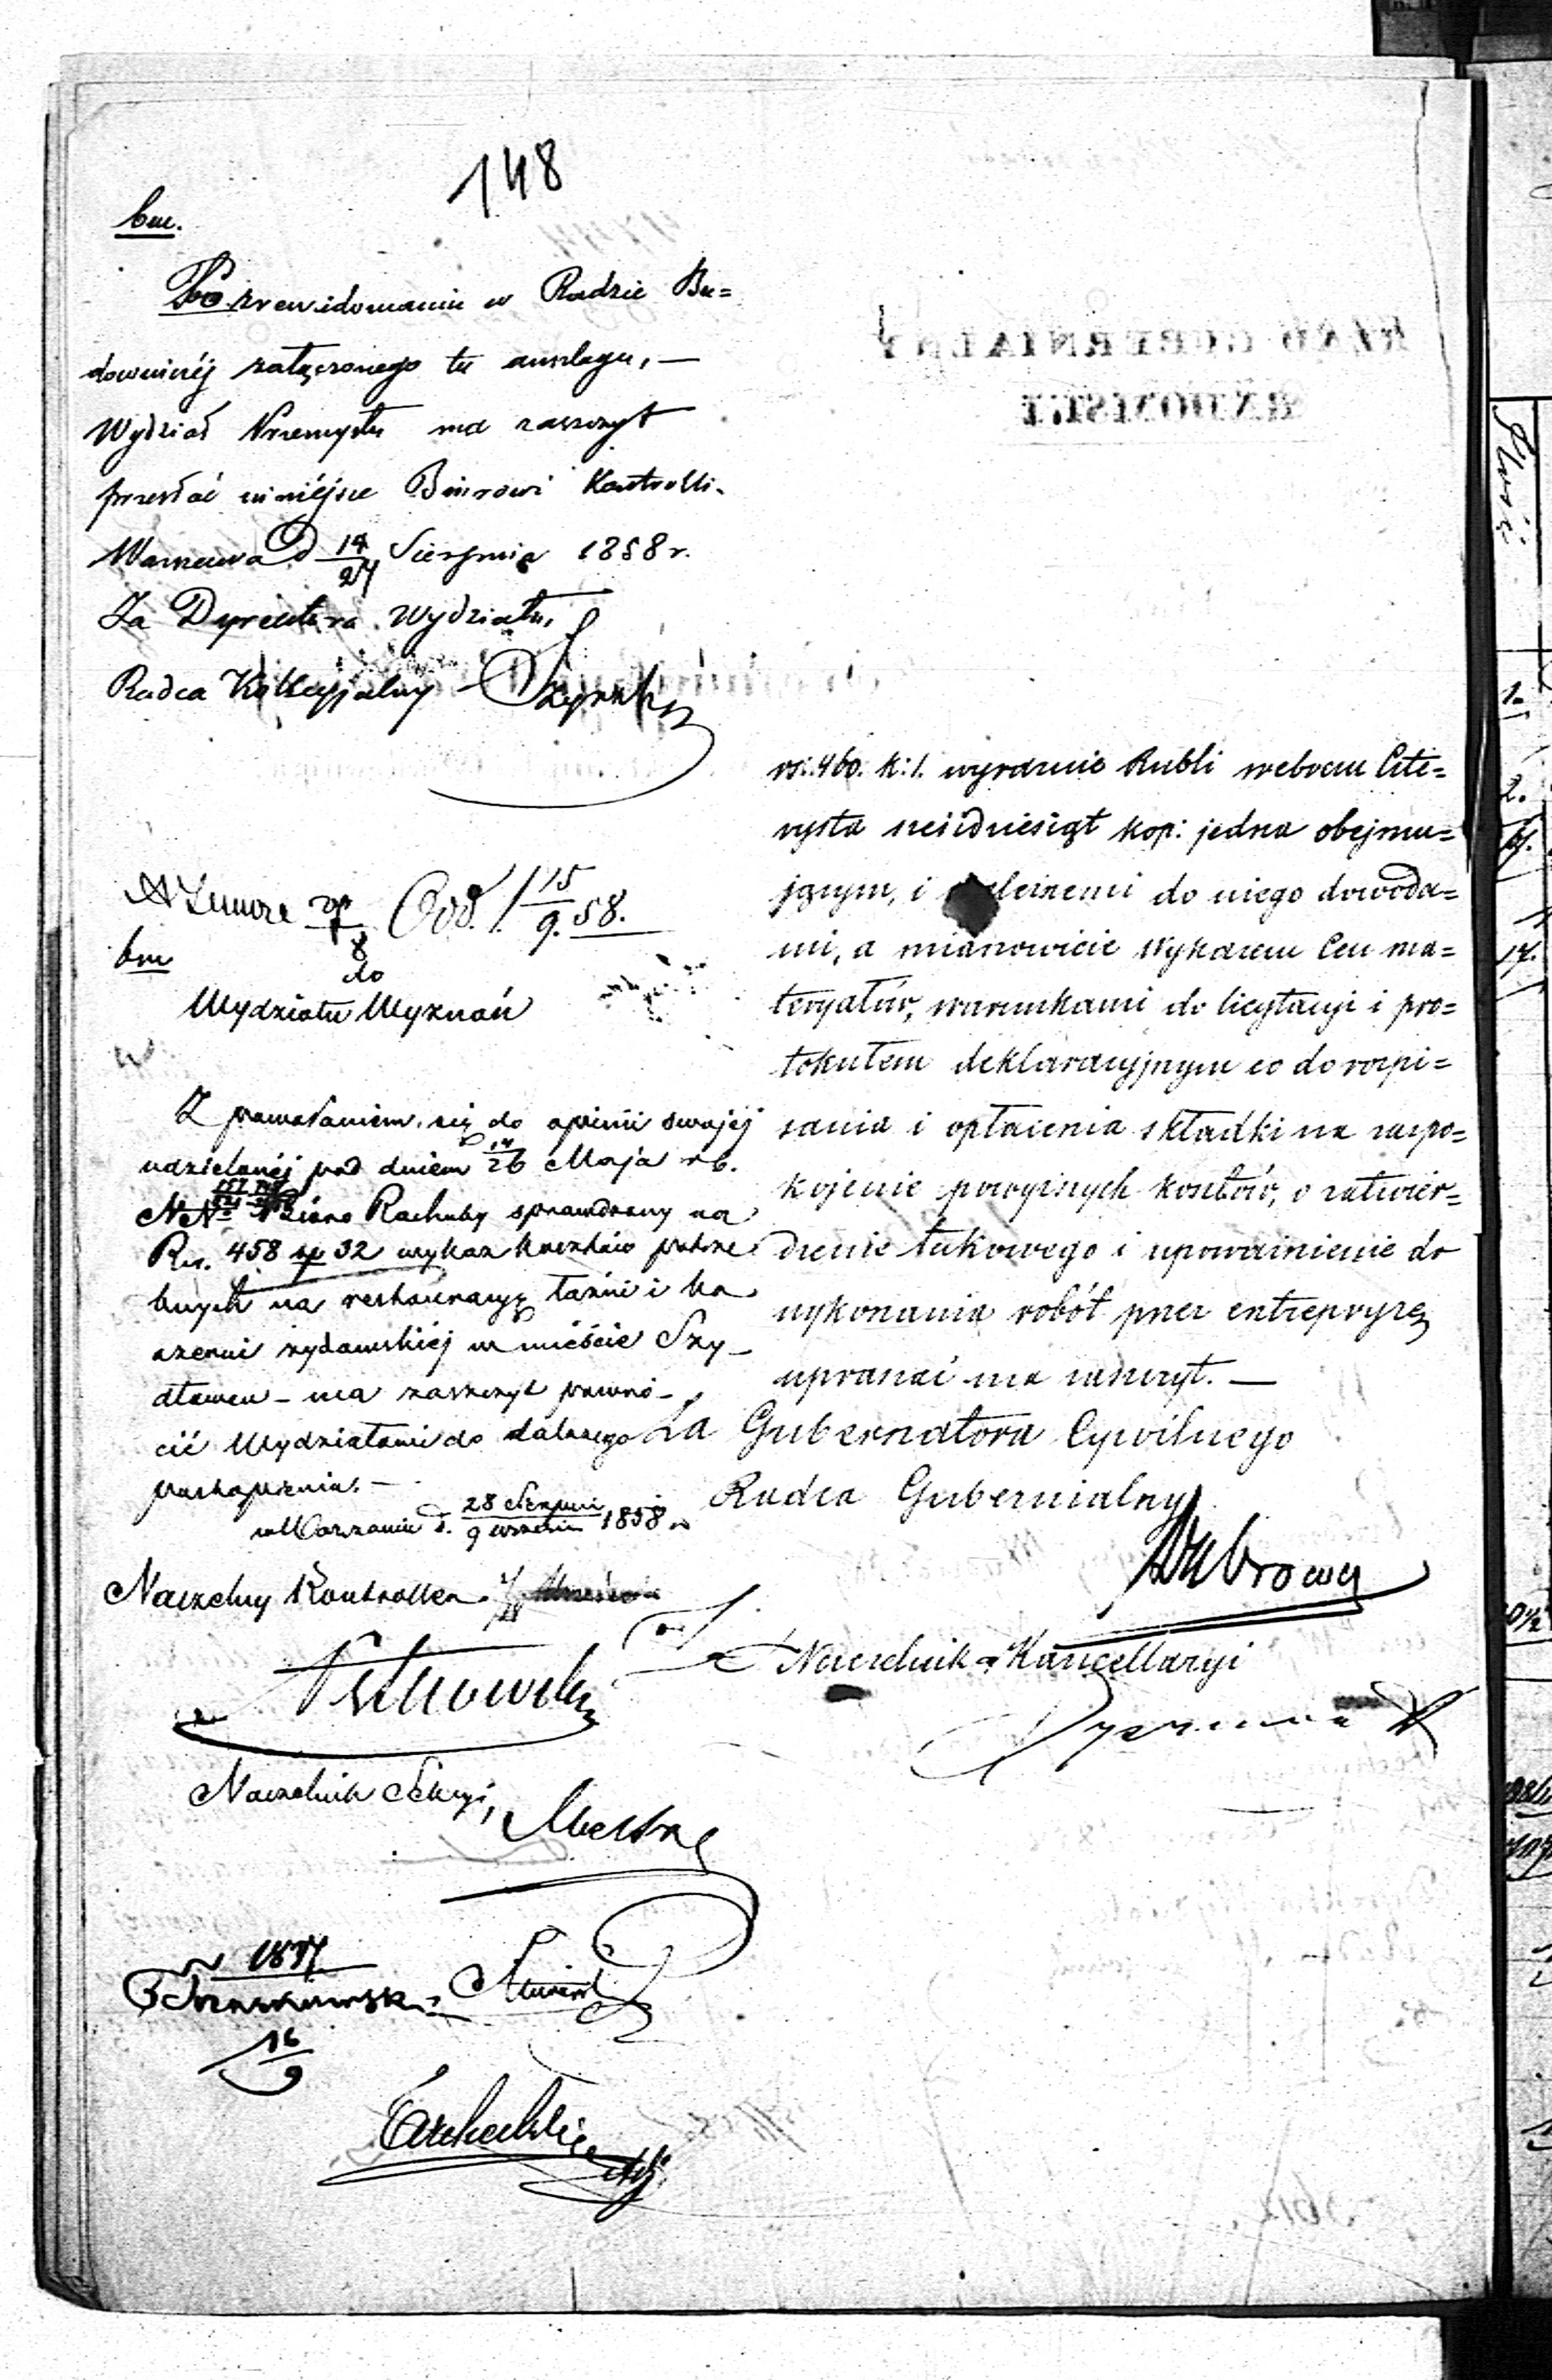 148
bm.
Po zrewidowaniu w Radzie Bu=
downiczéj załączonego tu anszlagu, —
Wydział Przemysłu ma zaszczyt
przesłać niniéjsze Biurowi Kontrolli.
Warszawa d 14/24 Sierpnia 1858 r.
Za Dyrektora Wydziału,
Radca Kollegjalny
15/9. 58.
bm
do
Wydziału Wyznań
Z powołaniem się do opinii swojéj
udzielonéj pod dniem 14/26 Maja rb.
NNo Biuro Rachuby sprawdzony na
Rs. 458 kp 32 wykaz kosztów potrze
bnych na restauracyę łaźni i ka
azerni żydowskiéj w mieście Szy_
dłowcu _ ma zaszczyt powró_
cić Wydziałowi do dalszego
postąpienia. —
w Warszawie d. 28 Sierpnia/9 Wrześn 1858 r.
Naczelny Kontroller
Naczelnik Sekcyi,
16/9
rs: 460. k: 1. wyraźnie Rubli srebrem Czte=
rysta sześćdziesiąt kop: jedna obejmu=
jącym, i do niego dowoda=
mi, a mianowicie Wykazem Cen ma=
teryałów, warunkami do licytacyi i pro=
tokułem deklaracyjnym co do rozpi=
sania i opłacenia składki na zaspo=
kojenie powyższych kosztów, o zatwier=
dzenie takowego i upoważnienie do
wykonania robót przez entrepryzę
upraszać ma zaszczyt. —
Za Gubernatora Cywilnego
Radca Gubernialny
Naczelnik Kancellaryi
RZĄD GUBERNIALNY
RADOMSKI